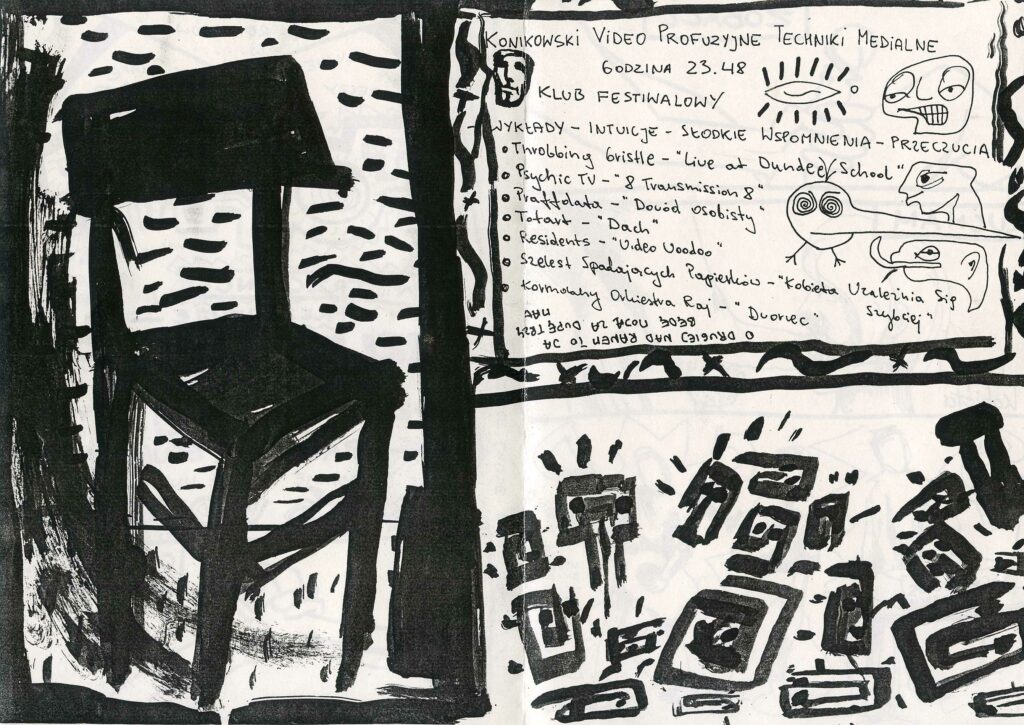 KONIKOWSKI VIDEO PROFUZYJNE TECHNIKI MEDIALNE
GODZINA 23.48
KLUB FESTIWALOWY
WYKŁADY - INTUICJE - SŁODKIE WSPOMNIENIA - PRZECZUCIA
• Throbbing Gristle - "Live at Dundee School"
• Psychic TV - "8 Transmission 8"
• Praffdata - "Dowód Osobisty"
• Totart - "Dach"
• Residents - "Video Voodoo"
• Szelest Spadających Papierków - "Kobieta Uzależnia Się
Szybciej"
• Kormorany Orkiestra Raj - "Dworzec"
O DRUGIEJ NAD RANEM TO JA
BĘDĘ NOCĄ ZA DWIE TRZY